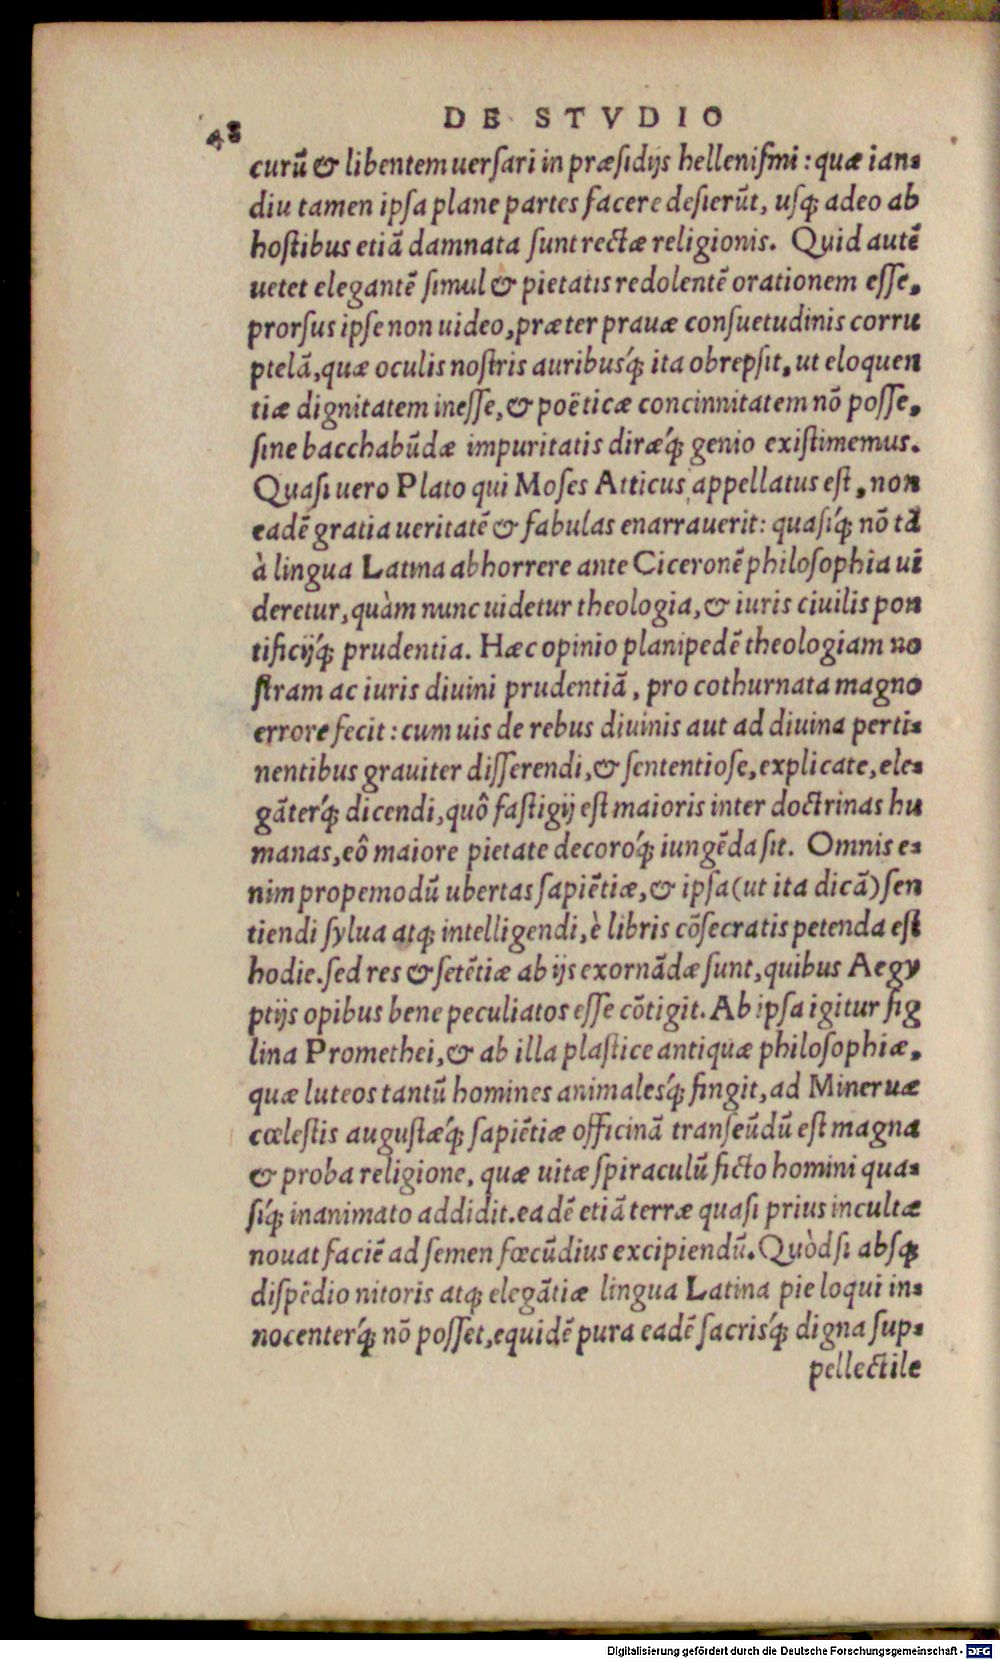 48
DE STVDIO
curū & libentem uersari in præsidijs hellenismi: quæ ian-
diu tamen ipsa plane partes facere desierūt, usq́; adeo ab
hostibus etiā damnata sunt rectæ religionis. Quid autē
uetet elegantē simul & pietatis redolentē orationem esse,
prorsus ipse non uideo, præter prauæ consuetudinis corru
ptelā, quæ oculis nostris auribusq́; ita obrepsit, ut eloquen
tiæ dignitatem inesse, & poëticæ concinnitatem nō posse,
sine bacchabūdæ impuritatis diræq́; genio existimemus.
Quasi uero Plato qui Moses Atticus appellatus est, non
eadē gratia ueritatē & fabulas enarrauerit: quasiq́; nō tā
à lingua Latina abhorrere ante Ciceronē philosophia ui
deretur, quàm nunc uidetur theologia, & iuris ciuilis pon
tificijq́; prudentia. Hæc opinio planipedē theologiam no
stram ac iuris diuini prudentiā, pro cothurnata magno
errore fecit: cum uis de rebus diuinis aut ad diuina perti-
nentibus grauiter disserendi, & sententiose, explicate, ele-
gāterq́; dicendi, quô fastigij est maioris inter doctrinas hu
manas, eô maiore pietate decoroq́; iungēda sit. Omnis e-
nim propemodū ubertas sapiētiæ, & ipsa (ut ita dicā) sen
tiendi sylua atq; intelligendi, è libris cōsecratis petenda est
hodie. sed res & setētiæ ab ijs exornādæ sunt, quibus Aegy
ptijs opibus bene peculiatos esse cōtigit. Ab ipsa igitur fig
lina Promethei, & ab illa plastice antiquæ philosophiæ,
quæ luteos tantū homines animalesq́; fingit, ad Mineruæ
cœlestis augustæq́; sapiētiæ officinā transeūdū est magna
& proba religione, quæ uitæ spiraculū ficto homini qua-
siq́; inanimato addidit. eadē etiā terræ quasi prius incultæ
nouat faciē ad semen fœcūdius excipiendū. Quòd si absq;
dispēdio nitoris atq; elegātiæ lingua Latina pie loqui in-
nocenterq́; nō posset, equidē pura eadē sacrisq́; digna sup-
pellectile
Digitalisierung gefördert durch die Deutsche Forschungsgemeinschaft - DFG